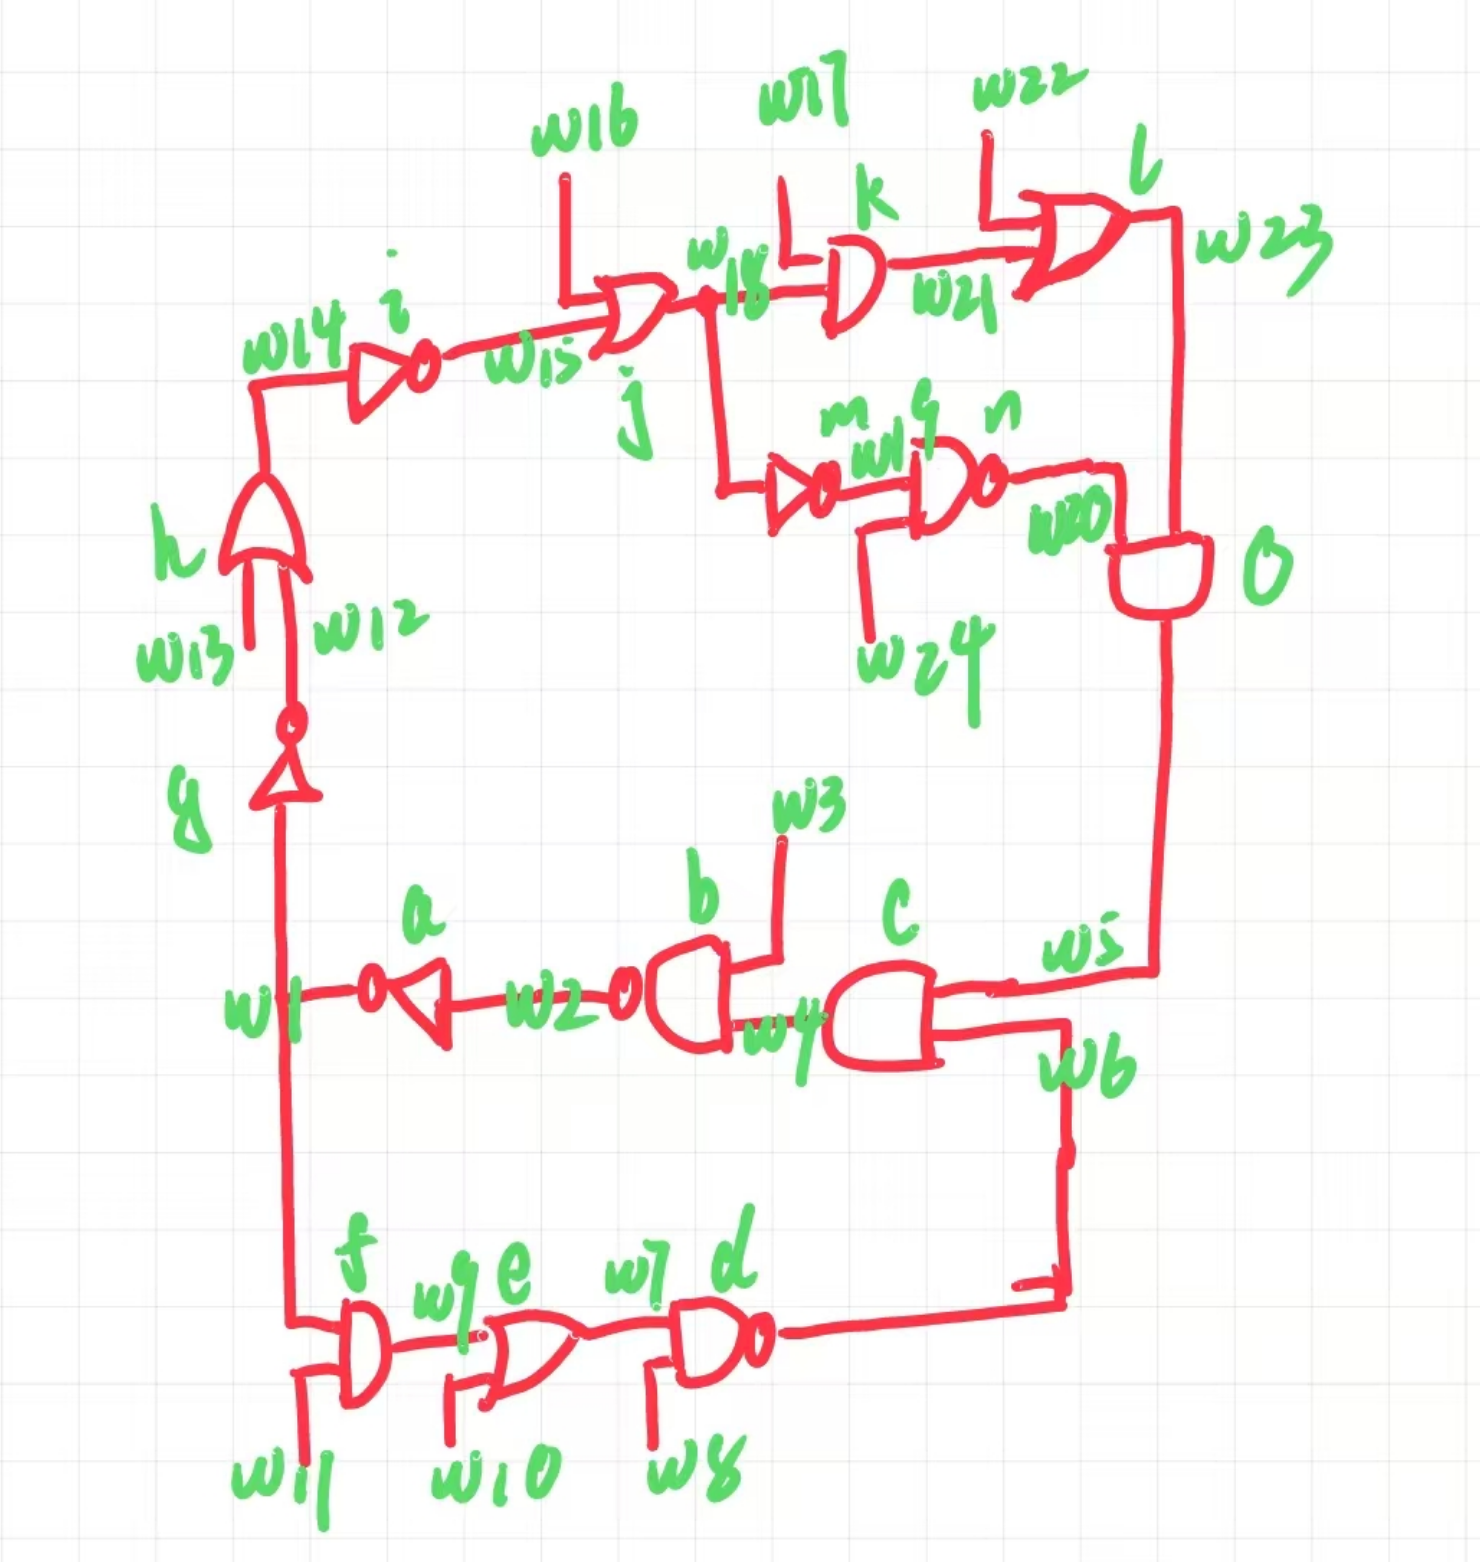 w16
w17
w22
l
k
w23
w18
w21
i
w14
w15
j
m
w19
n
w20
o
h
w13
w12
w24
g
w3
b
a
c
w5
w1
w2
w4
w6
f
w9
e
w7
d
w11
w10
w8